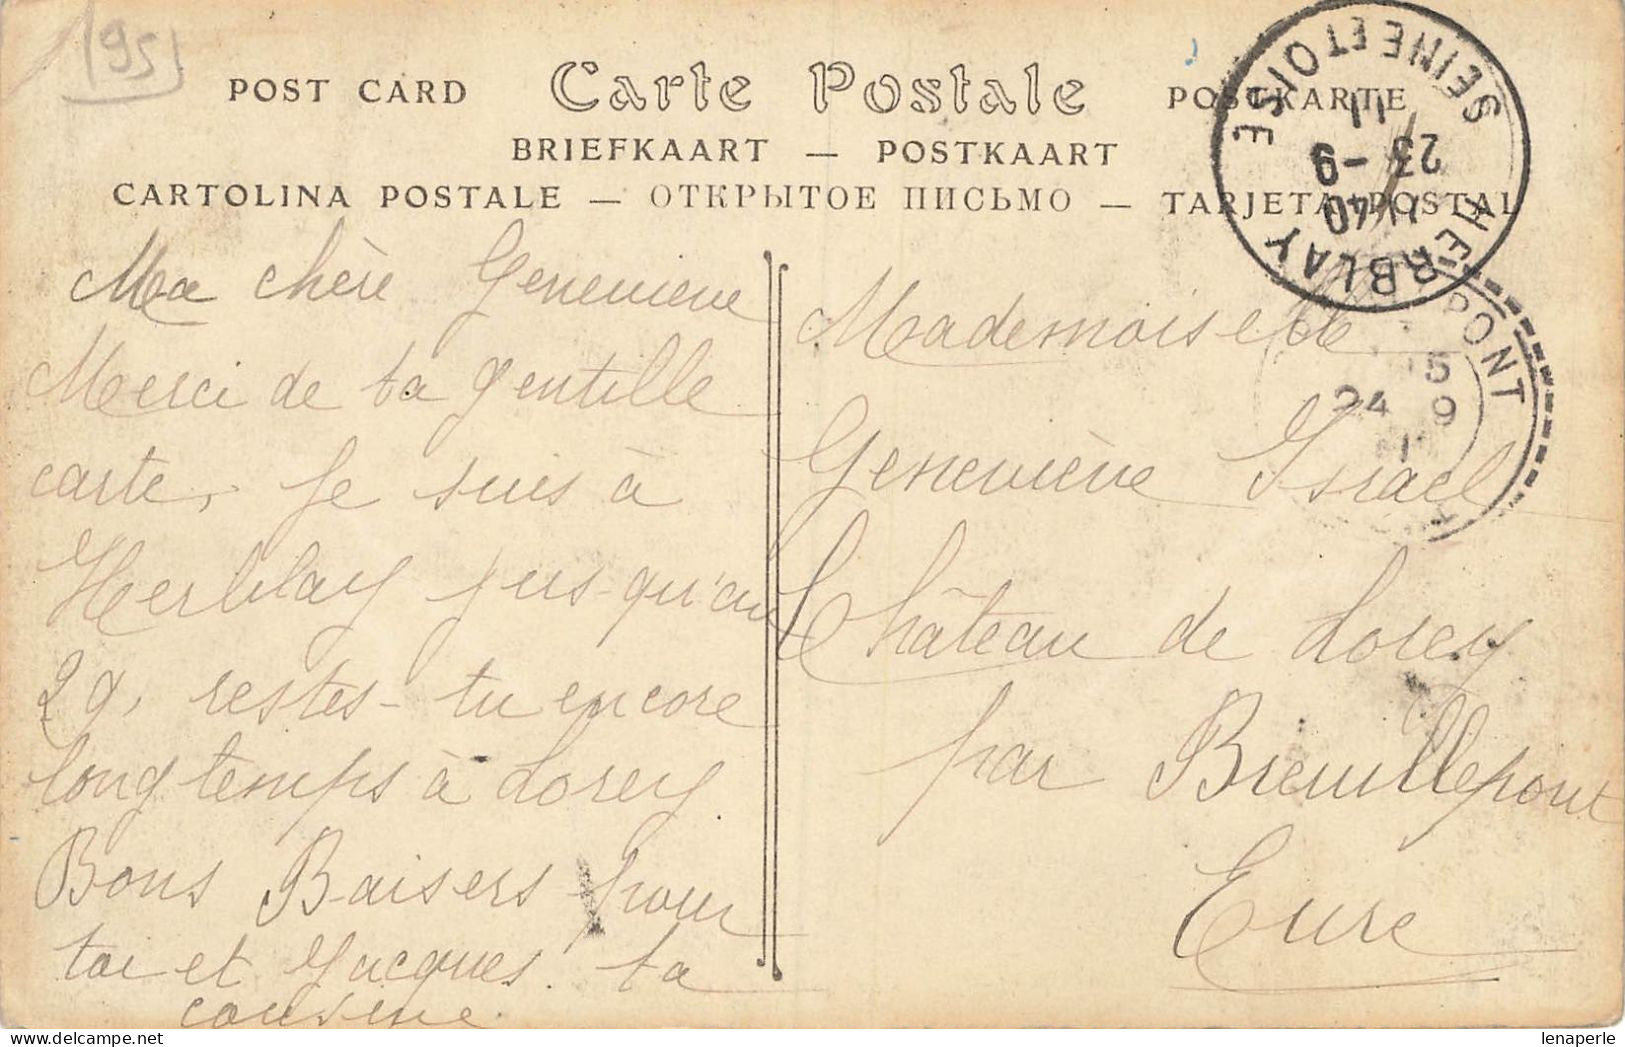 195
POST CARD Carte Postale POSTKARTE
BRIEFKAART — POSTKAART
CARTOLINA POSTALE — ОТКРЫТОЕ ПИСЬМО — TARJETA POSTAL
HERBLAY SEINE ET OISE
11
23 -9
40
PONT
5
24 9
1
Ma chère Geneviève
Merci de ta gentille
carte, Je suis à
Herblay jus-qu'au
29, restes-tu encore
longtemps à Lorey
Bons Baisers pour
toi et Jacques. ta
cousine
Mademoiselle
Geneviève Israel
Château de Lorey
par Breuillepont
Eure
lenaperle